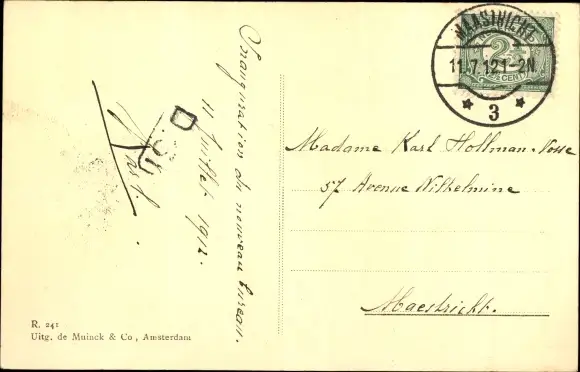 Inauguration du nouveau bureau.
11 Juillet 1912.
MAASTRICHT
11.7.12 1-2N
3
2½
CENT
Madame Karl Hollman-Vosse
57 Avenue Wilhelmine
Maestricht.
R. 241
Uitg. de Muinck & Co, Amsterdam